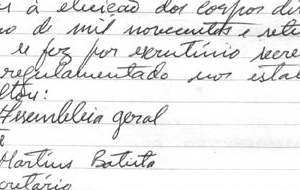 à eleição dos corpos di
no de mil novecentos e set
se fez por escrutínio secre
regulamentado nos esta
ltou:
Assembleia geral
Martins Batista
cretário